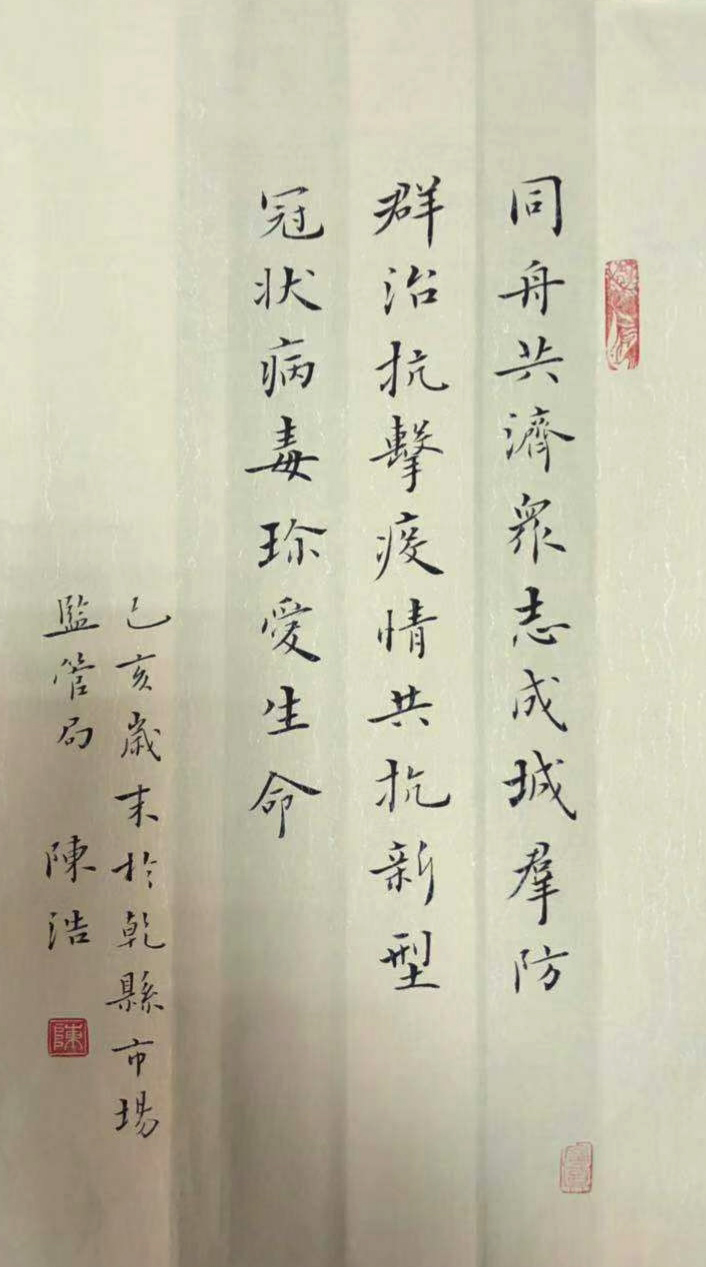 同舟共濟眾志成城羣防
群治抗擊疫情共抗新型
冠状病毒珎愛生命
乙亥歲末於乾縣市場
監管局 陳浩
陳